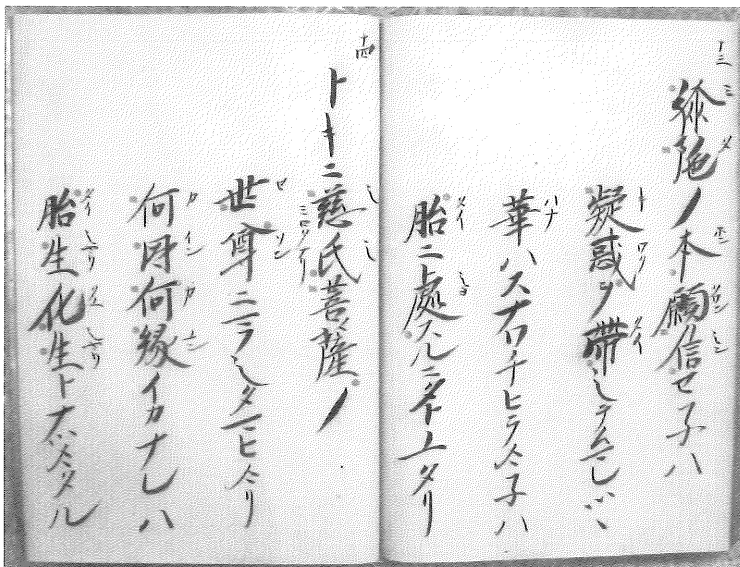 十三
弥陁ノ本願信セ子ハ
疑惑ヲ帶シテムマレツヽ
華ハスナワチヒラケ子ハ
胎ニ處スルニタトエタリ
十四
トキニ慈氏菩薩ノ
世尊ニマフシタマヒケリ
何因何縁イカナレハ
胎生化生トナツケタル